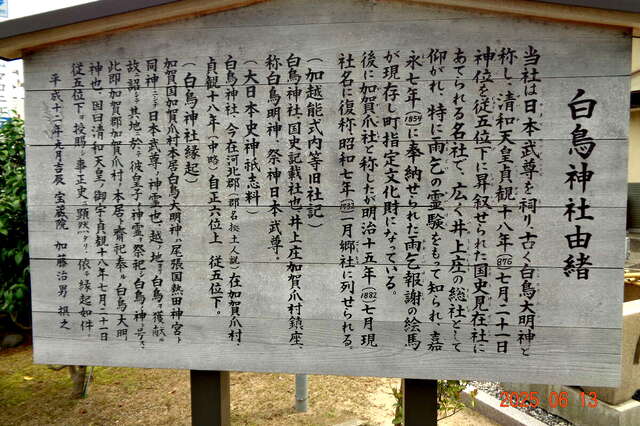 白鳥神社由緒
当社は日本武尊を祠り、古く白鳥大明神と
称し、清和天皇貞観十八年(876)七月二十一日
神位を従五位下に昇叙せられた国史見在社に
あてられる名社で、広く井上庄の総社として
仰がれ、特に雨乞の霊験をもって知られ、嘉
永七年(1854)に奉納せられた雨乞報謝の絵馬
が現存し町指定文化財になっている。
後に加賀爪社と称したが明治十五年(1882)七月現
社名に復称昭和七年(1932)二月郷社に列せられる。
(加越能式内等旧社記)
白鳥神社、国史記載社也、井上庄加賀爪村鎮座、
称白鳥明神、祭神日本武尊、
(大日本史神祇志料)
白鳥神社、今在河北郡、加賀爪村、
貞観十八年(中略)自正六位上 従五位下。
(白鳥神社縁起)
加賀国加賀爪村本居白鳥大明神ハ尾張国熱田神宮ト
同神ニシテ日本武尊ノ神霊也、越ノ地ヨリ白鳥ヲ献ル
故ニ詔シテ其地ニ於テ彼皇子ノ神霊ヲ祭祀シ白鳥神ト号ス、
此即加賀郡加賀爪村ノ本居ト齋祀奉ル白鳥大明
神也、因曰清和天皇ノ御宇貞観十八年七月二十一日
従五位下ヲ授賜フ事正史ニ顕然タリ、依テ縁起如件、
平成十二年九月吉辰 宝蔵院 加藤治男 撰之
2025 06 13